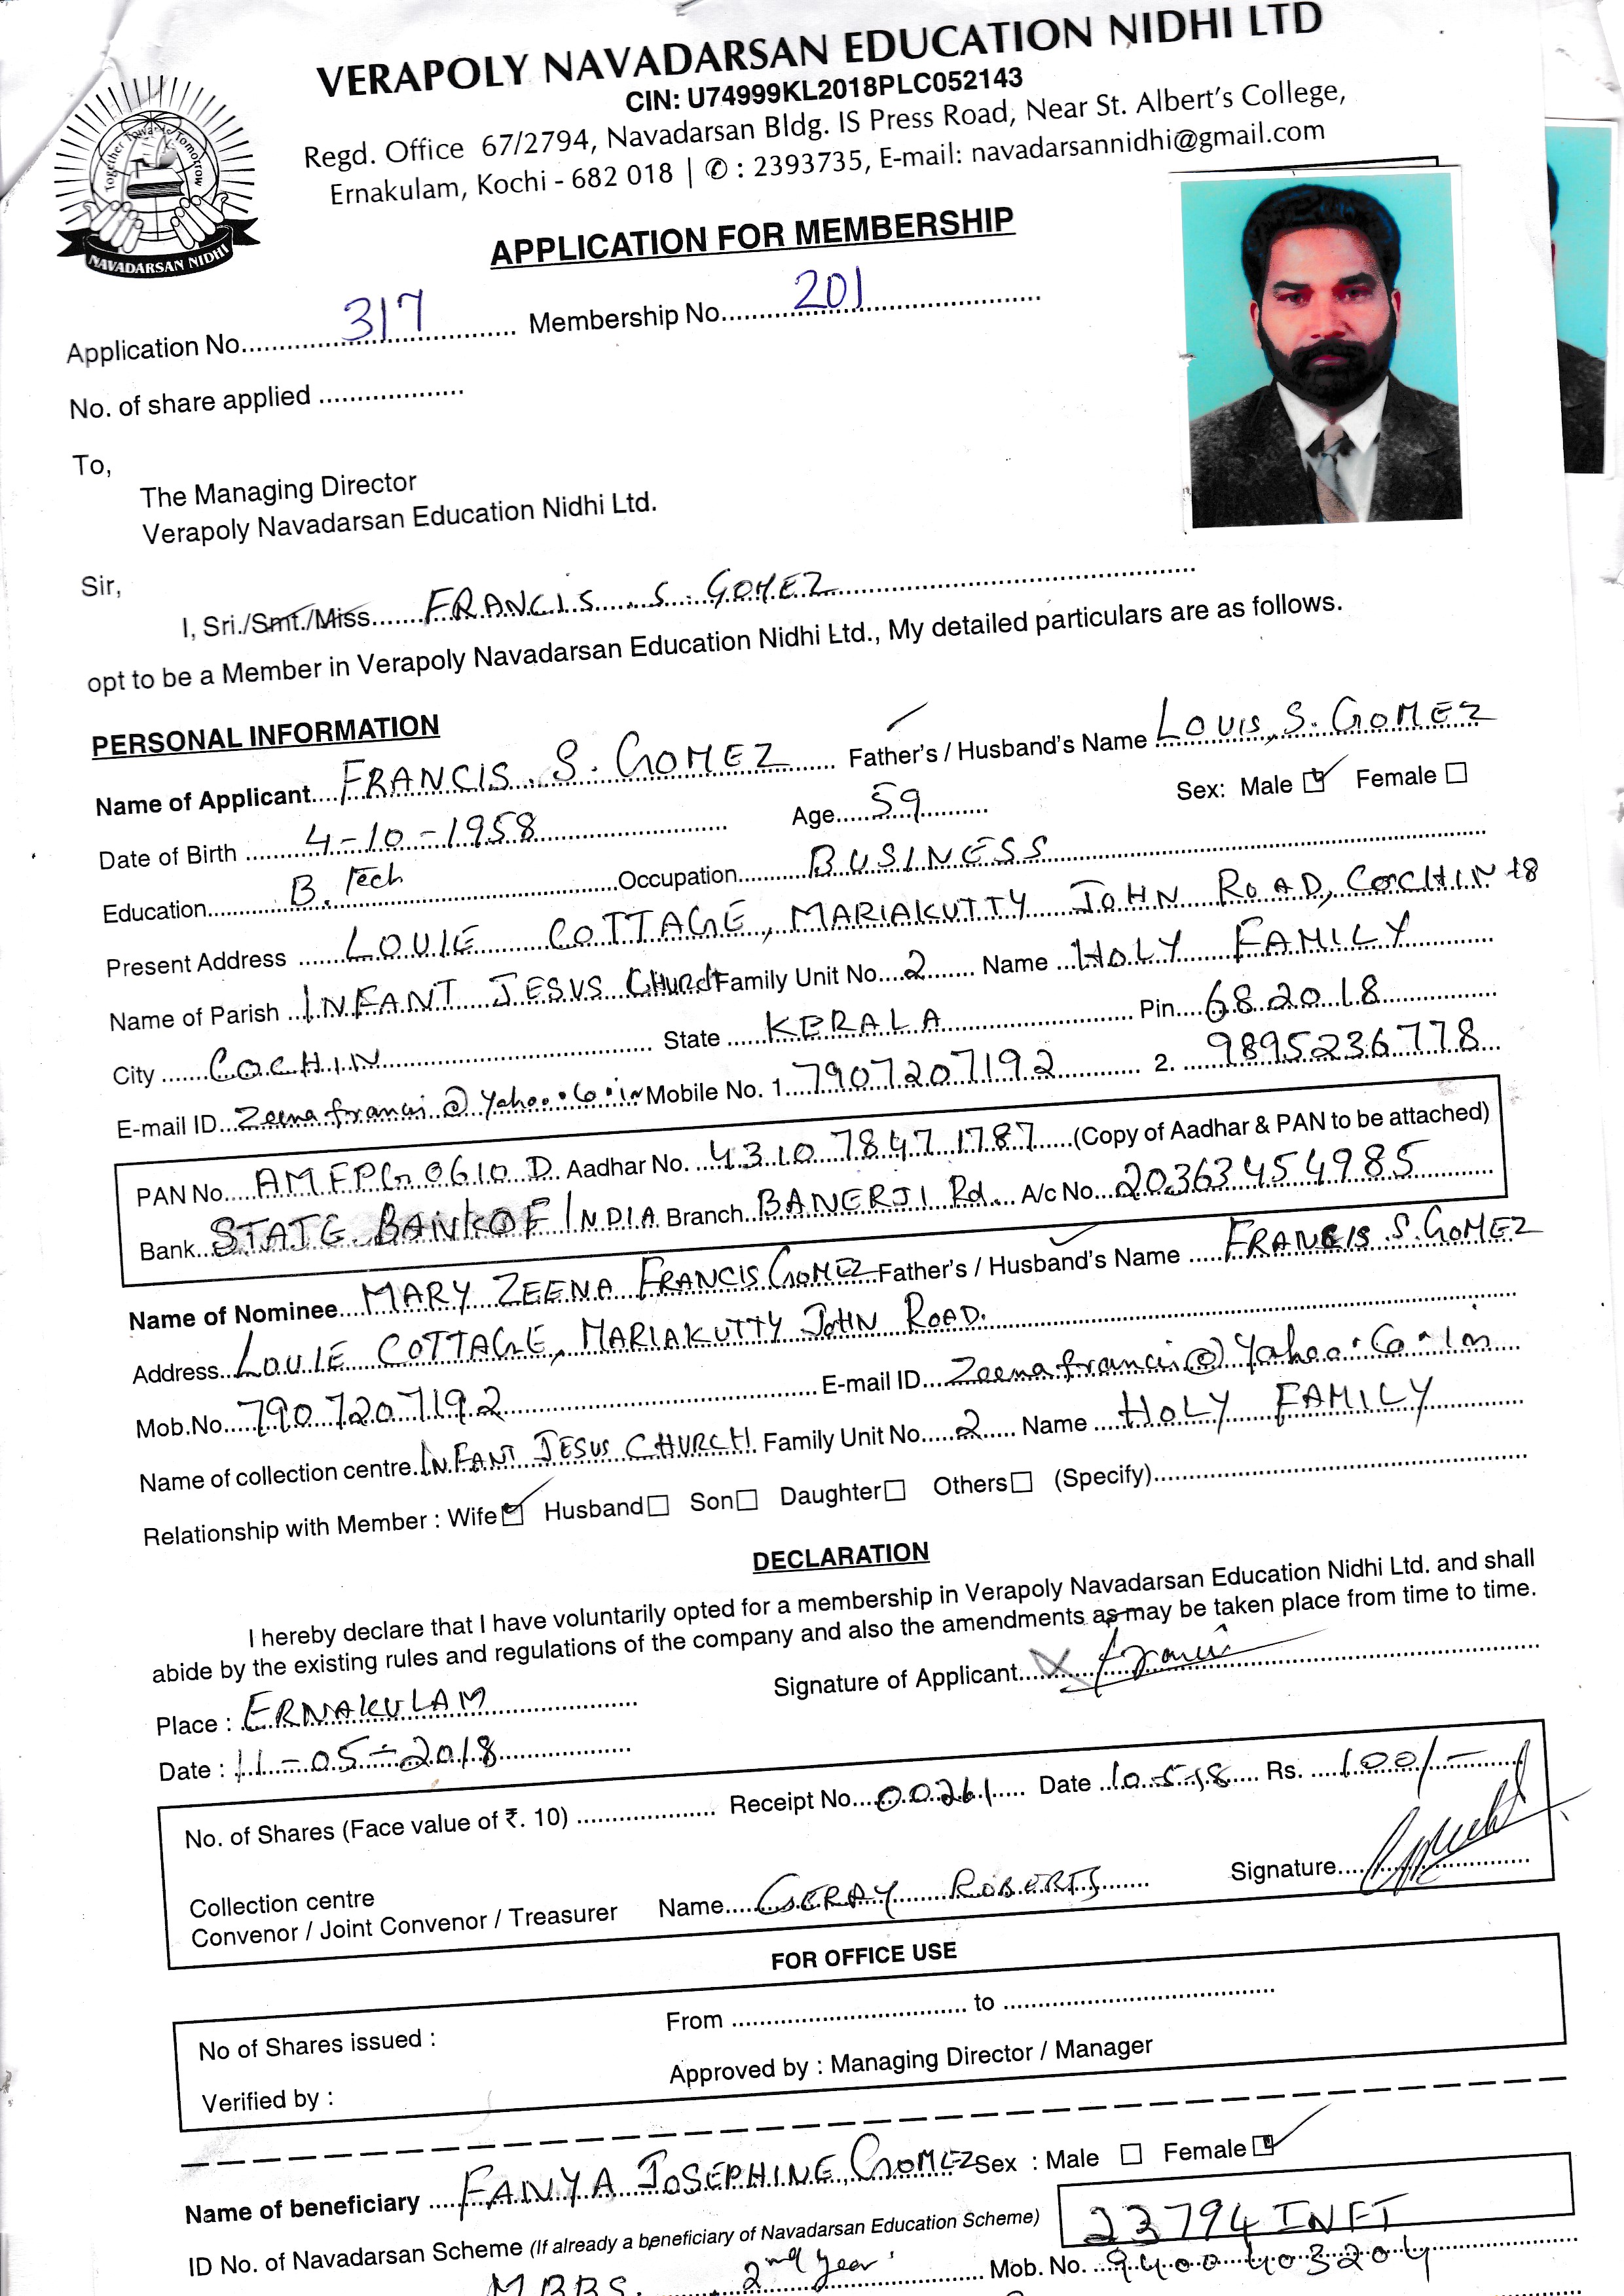 VERAPOLY NAVADARSAN EDUCATION NIDHI LTD
CIN: U74999KL2018PLC052143
Regd. Office 67/2794, Navadarsan Bldg. IS Press Road, Near St. Albert's College,
Ernakulam, Kochi - 682 018 | ✆ : 2393735, E-mail: navadarsannidhi@gmail.com
Together Towards Tomorrow
NAVADARSAN NIDHI
APPLICATION FOR MEMBERSHIP
Application No. 317 Membership No. 201
No. of share applied
To,
The Managing Director
Verapoly Navadarsan Education Nidhi Ltd.
Sir,
I, Sri./Smt./Miss FRANCIS S. GOMEZ
opt to be a Member in Verapoly Navadarsan Education Nidhi Ltd., My detailed particulars are as follows.
PERSONAL INFORMATION
Name of Applicant FRANCIS. S. GOMEZ Father's / Husband's Name LOUIS, S. GOMEZ
Date of Birth 4-10-1958 Age 59 Sex: Male Female
Education B. Tech Occupation BUSINESS
Present Address LOUIE COTTAGE, MARIAKUTTY JOHN ROAD, COCHIN 18
Name of Parish INFANT JESUS CHURCH Family Unit No. 2 Name HOLY FAMILY
City COCHIN State KERALA Pin 682018
E-mail ID Zeenafranci@yahoo.co.in Mobile No. 1. 7907207192 2. 9895236778
PAN No. AMFPG0610D Aadhar No. 4310 7847 1787 (Copy of Aadhar & PAN to be attached)
Bank STATE BANK OF INDIA Branch BANERJI Rd. A/c No. 20363454985
Name of Nominee MARY ZEENA FRANCIS GOMEZ Father's / Husband's Name FRANCIS S. GOMEZ
Address LOUIE COTTAGE, MARIAKUTTY JOHN ROAD.
Mob.No. 7907207192 E-mail ID Zeenafranci@yahoo.co.in
Name of collection centre INFANT JESUS CHURCH Family Unit No. 2 Name HOLY FAMILY
Relationship with Member : Wife Husband Son Daughter Others (Specify)
DECLARATION
I hereby declare that I have voluntarily opted for a membership in Verapoly Navadarsan Education Nidhi Ltd. and shall
abide by the existing rules and regulations of the company and also the amendments as may be taken place from time to time.
Signature of Applicant Francis
Place : ERNAKULAM
Date : 11-05-2018
No. of Shares (Face value of ₹. 10) Receipt No. 00261 Date 10-5-18 Rs. 100/-
Collection centre
Convenor / Joint Convenor / Treasurer Name GERAY ROBERTS Signature
FOR OFFICE USE
No of Shares issued : From to
Verified by : Approved by : Managing Director / Manager
Name of beneficiary FANYA JOSEPHINE GOMEZ Sex : Male Female
ID No. of Navadarsan Scheme (If already a beneficiary of Navadarsan Education Scheme) 23794 INFT
MBBS. 2nd year Mob. No. 9400403204